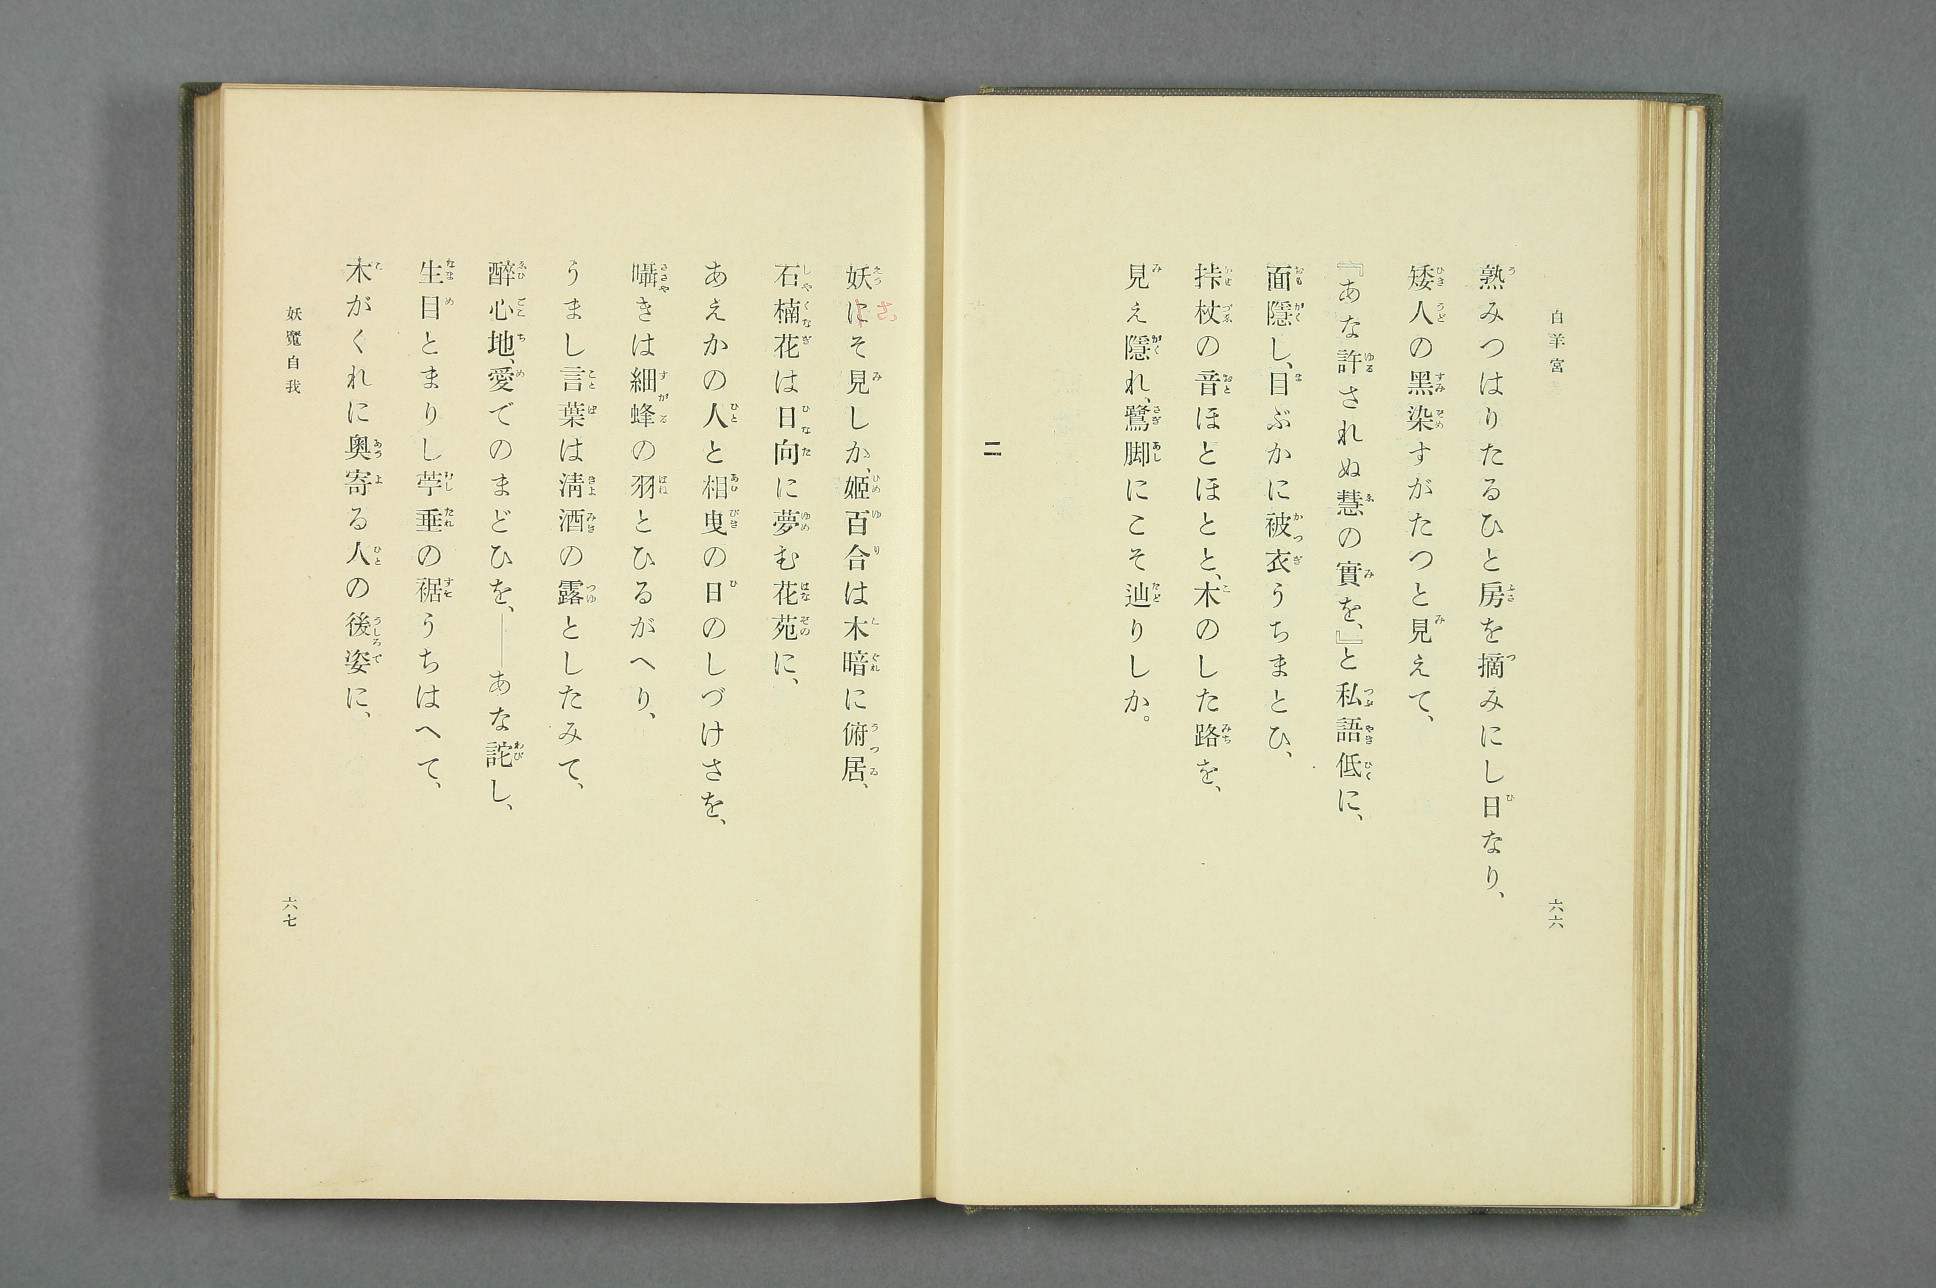 白羊宮
六六
熟みつはりたるひと房を摘みにし日なり、
矮人の黑染すがたつと見えて、
『あな許されぬ慧の實を、』と私語低に、
面隱し、目ぶかに被衣うちまとひ、
桛杖の音ほとほとと、木のした路を、
見え隱れ、鷺脚にこそ辿りしか。
二
妖にそ見しか、姬百合は木暗に俯居、
さ
石楠花は日向に夢む花苑に、
あえかの人と相曳の日のしづけさを、
囁きは細蜂の羽とひるがへり、
うまし言葉は淸酒の露としたみて、
醉心地、愛でのまどひを、――あな詫し、
生目とまりし苧垂の裾うちはへて、
木がくれに奧寄る人の後姿に、
妖魔自我
六七